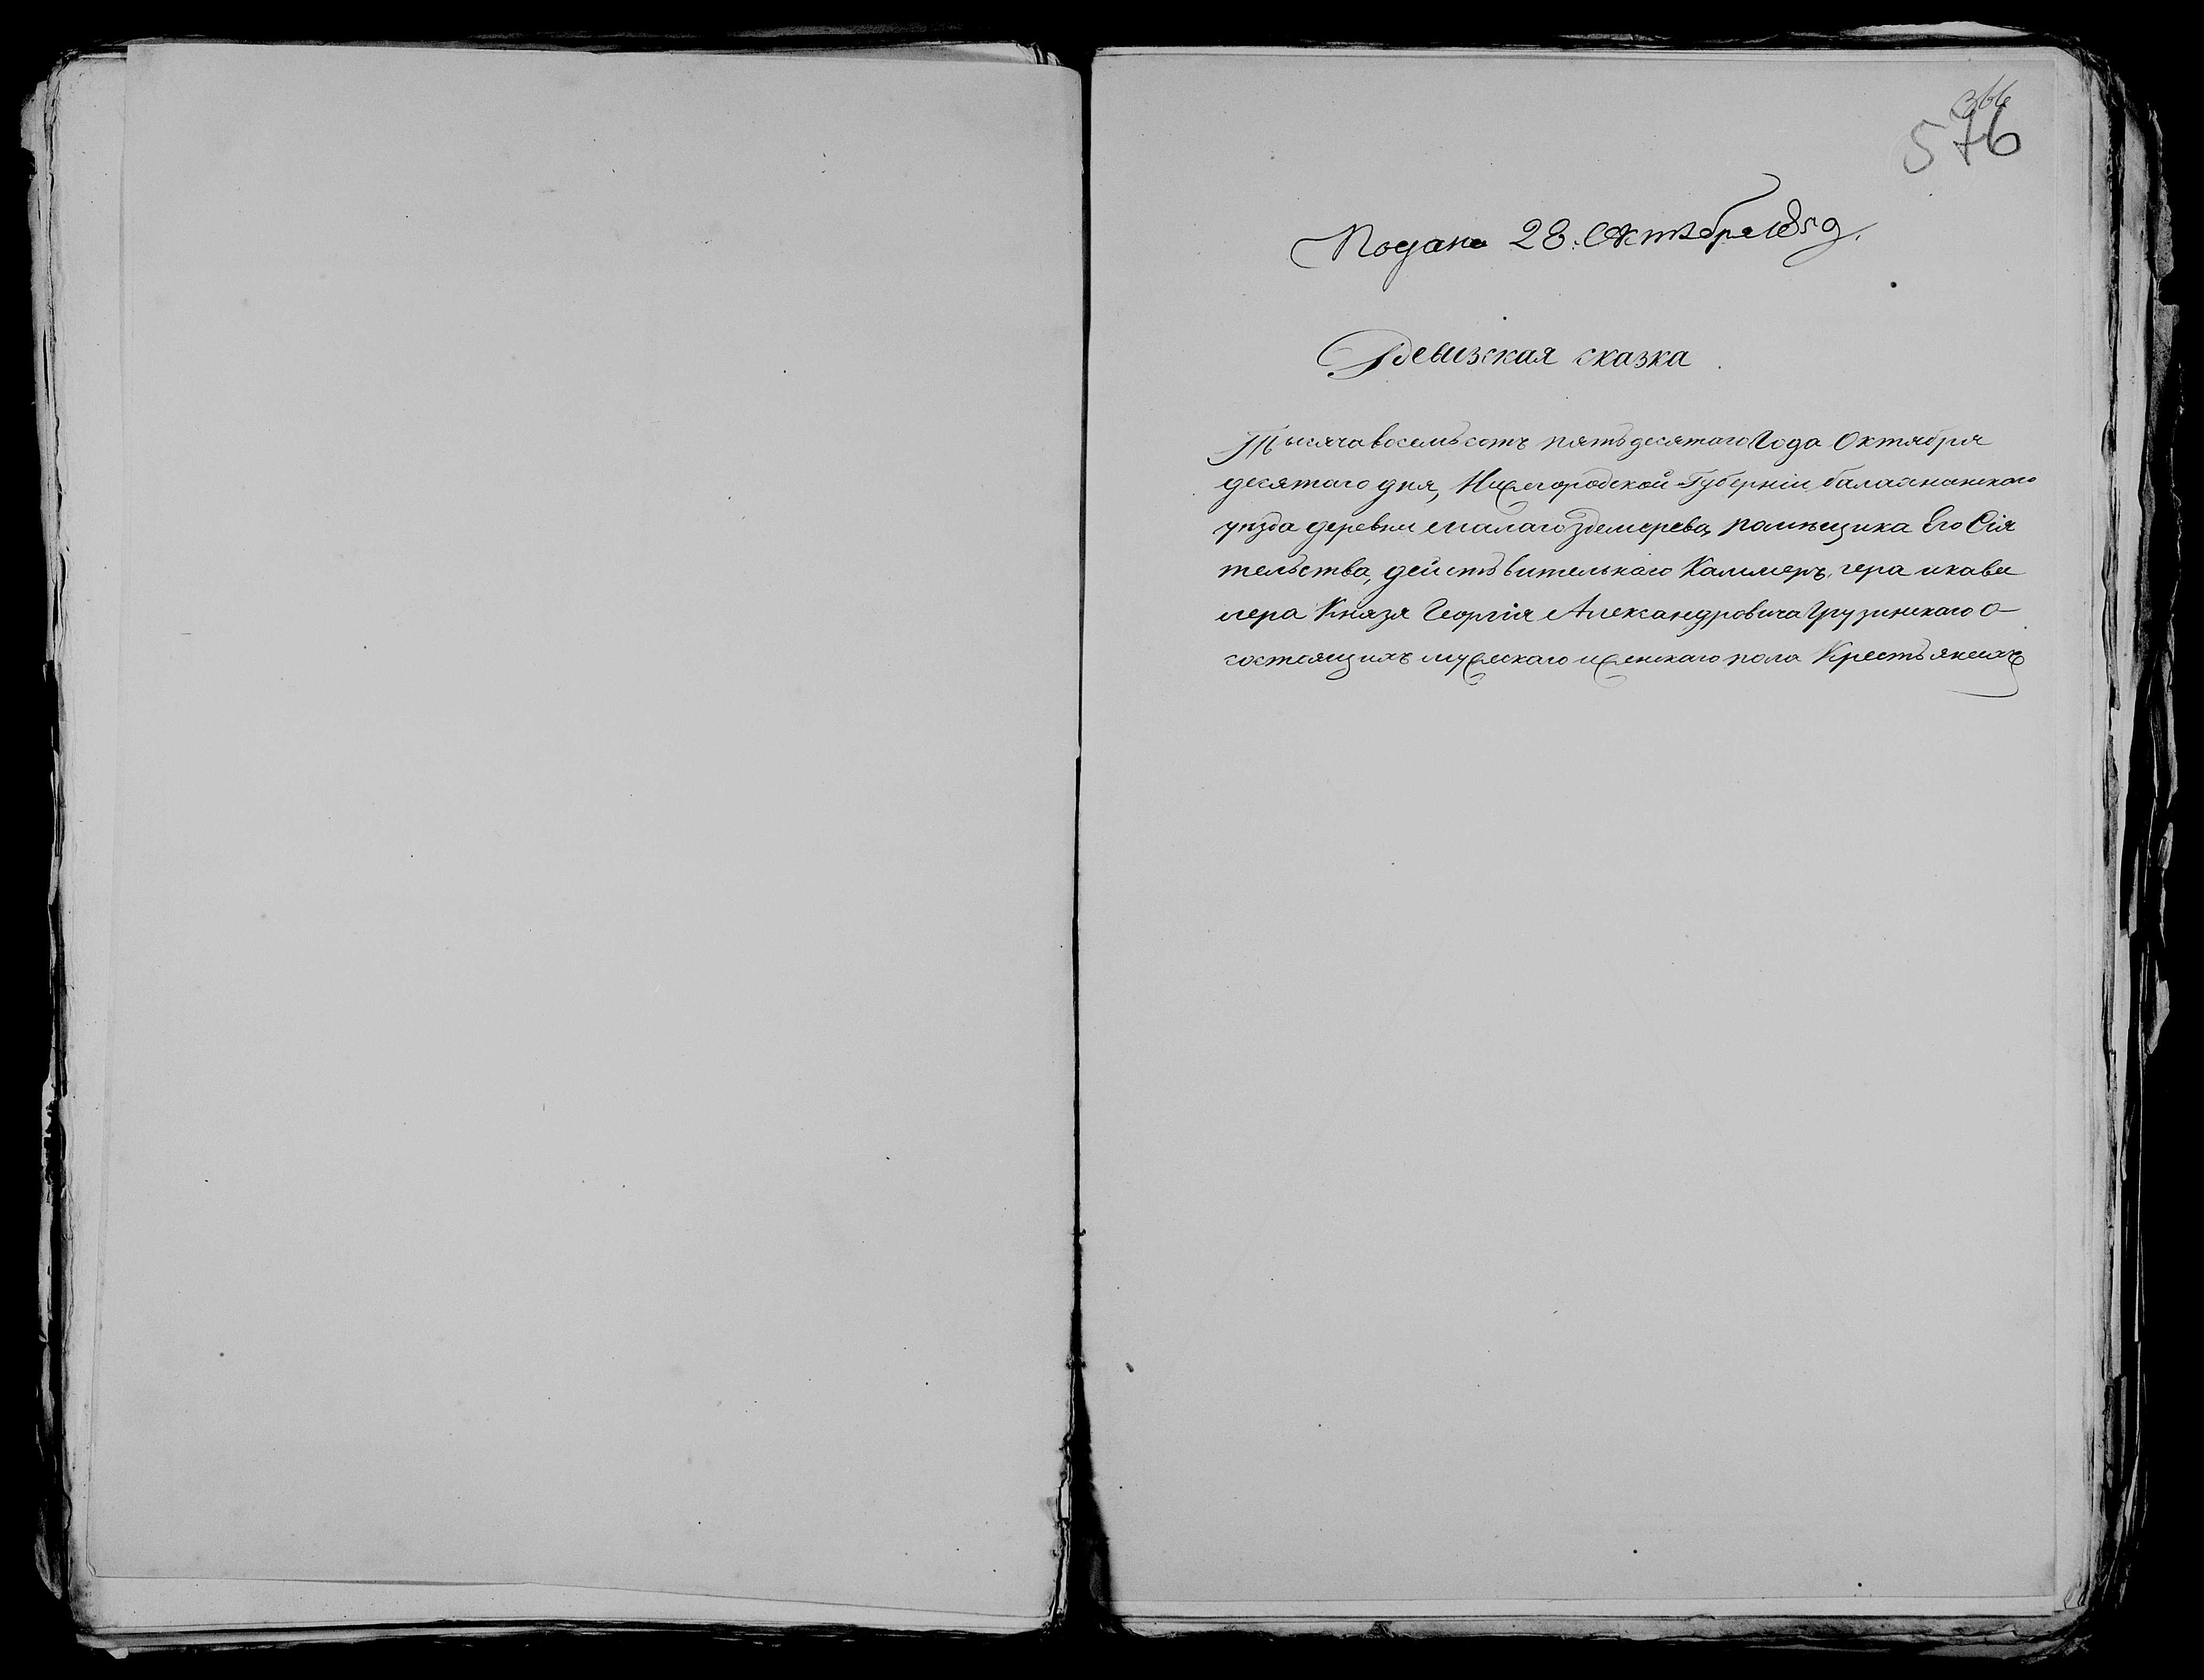 366
576
Подана 28. Октября 1850.
Ревизская сказка.
Тысяча восемьсотъ пятьдесятаго Года Октября
десятаго дня, Нижегородской Губерніи балахнинскаго
уезда деревни малаго помѣщика Его Сія
тельства, действительнаго Каммеръ, гера и кава
лера Князя Георгія Александровича Грузинскаго о
состоящихъ мужескаго и женскаго пола Крестьянехъ